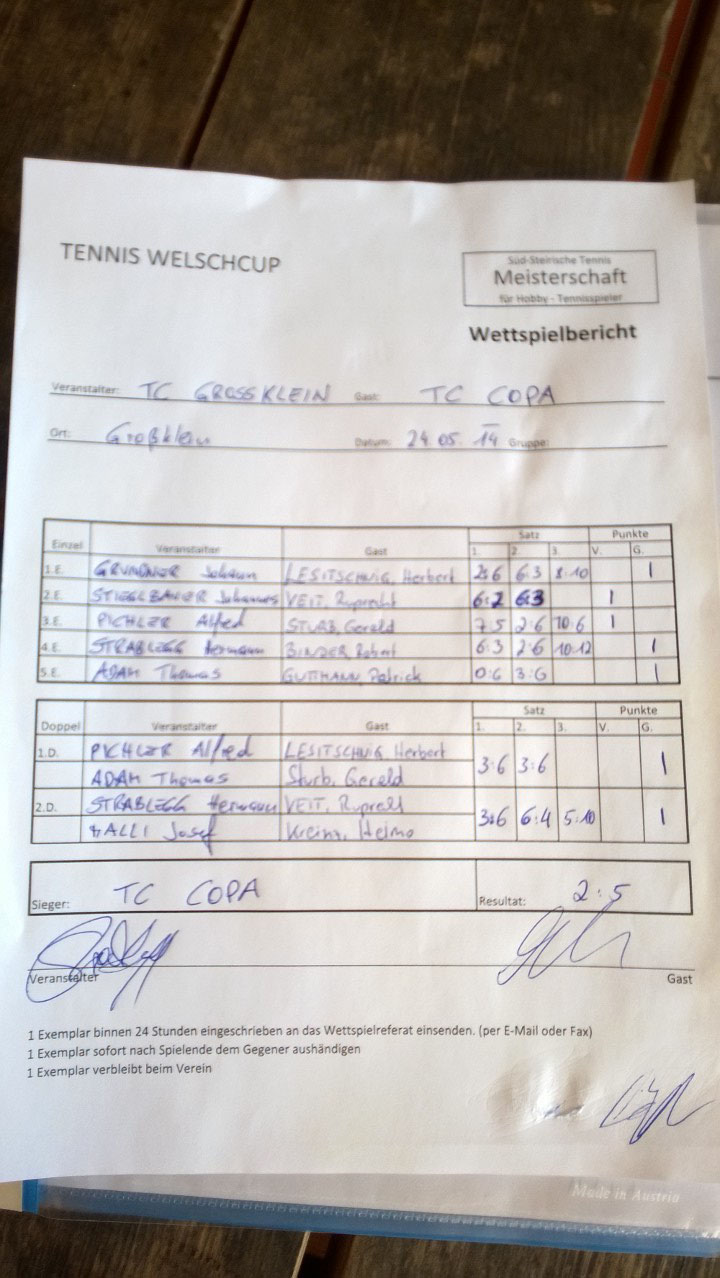 TENNIS WELSCHCUP
Süd-Steirische Tennis
Meisterschaft
für Hobby - Tennisspieler
Wettspielbericht
Veranstalter: TC GROSSKLEIN Gast: TC COPA
Ort: Großklein Datum: 24.05.14 Gruppe:
Einzel Veranstalter Gast Satz Punkte
1. 2. 3. V. G.
1.E. Johann LESITSCHNIG, Herbert 2:6 6:3 8:10 1
2.E. STIEGLBAUER Johannes VEIT, Ruprecht 6:2 6:3 1
3.E. PICHLER Alfred STURB, Gerald 7:5 2:6 10:6 1
4.E. STRABLEGG Hermann BINDER, Robert 6:3 2:6 10:12 1
5.E. ADAM Thomas GUTTMANN, Patrick 0:6 3:6 1
Doppel Veranstalter Gast Satz Punkte
1. 2. 3. V. G.
1.D. PICHLER Alfred LESITSCHNIG Herbert 3:6 3:6 1
ADAM Thomas Sturb, Gerald
2.D. STRABLEGG Hermann VEIT, 3:6 6:4 5:10 1
Josef Heimo
Sieger: TC COPA Resultat: 2:5
Veranstalter Gast
1 Exemplar binnen 24 Stunden eingeschrieben an das Wettspielreferat einsenden. (per E-Mail oder Fax)
1 Exemplar sofort nach Spielende dem Gegener aushändigen
1 Exemplar verbleibt beim Verein
Made in Austria